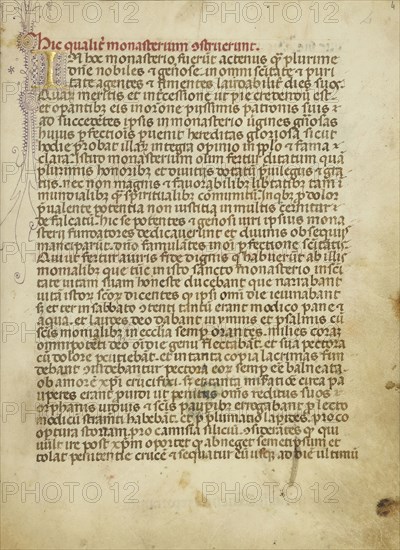 Hic qualit' monasterium 9struerunt.
In hoc monasterio fuerut actenus q̃ plurime
dñe nobiles & gẽnose. in omni sc̃itate & puri
tate agentes & finientes laudabilit' dies suos.
Quar meritis et intercessione ut pie credendũ est.
et operantibus eis monore piissimis patronis suis &
ad succedẽtes ipsis in monasterio ugines gẽnosas
huius pfectionis puenit hereditas gloriosa sicut
hodie probat illar integra opinio in pplo & fama &
clara. Istud monasterium olim fertur ditatum quã
plurimis honoribus et divitiis dotatũ puilegiis & gra
tiis. nec non magnis & favorabilibus libtatibus tam i
mundialibus q̃ spiritualibus comuniti.
pualente potentia non iusticia in multis cernitur &
defalcati. Hic se potentes & genosi uiri ipsius mona
sterii fundatores dedicauerunt et diuinis obsequiis
manciparũt. dño famulãtes in oi pfectione sc̃itatis
Qui ut fertur auris fide dignis q̃ habuerũt ab illis
monialibus que tũc in isto sancto monasterio in sc̃i
tate uitam suam honeste ducebant que narrabant
uitã istor scõr dicentes q̃ ipsi omi die ieiunabant
& et ter in sabbato 9tenti tantũ erant modico pane &
aqua. et laudes deo dabant in ymnis et psalmis cũ
seis monialibus in ecclesia semp orantes. milies coraz
omnipotẽti deo oi die genu flectabãt. et sua pectora
cũ dolore pcutiebãt. et in tanta copia lacrimas fun
debant 9tristebantur pectora eor semp eẽ balneata.
ob amorẽ xpi crucifixi. & et tanta mirat circa pa
uperes erant puidi ut penitus om̃s reditus suos &
orphanis uiduis & seis paupibus errogabant p lecto
modicũ straminis habebãt. et p plumatio lapides. pro co
optura storiam. pro camisia siliciũ. 9siderãtes q̃ qui
uult ire post xpm oportet q̃ abneget semetipsum et
tolat penitentie crucẽ & sequatur dũ usq̃ ad uite ultimũ
PHOTO 12